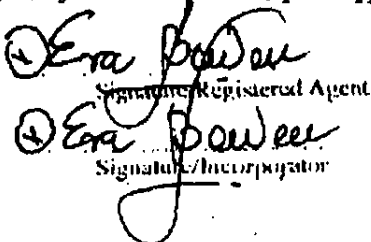 Era Bowen
Signature/Registered Agent
Era Bowen
Signature/Incorporator